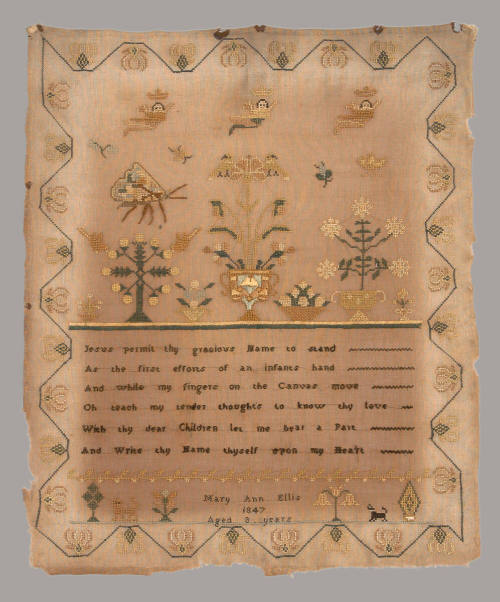 Jesus permit thy gracious Name to stand
As the first efforts of an infants hand
And while my fingers on the Canvas move
Oh teach my tender thoughts to know thy love
With thy dear Children let me bear a Part
And Write thy Name thyself upon my Heart
Mary Ann Ellis
1847
Aged 8 years